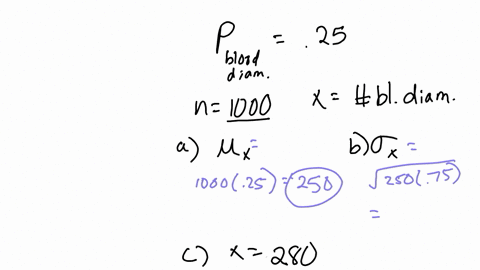 P blood diam. = .25
n = 1000 x = # bl. diam.
a) μx = b) σx =
1000(.25) = 250 √250(.75)
=
c) x = 280